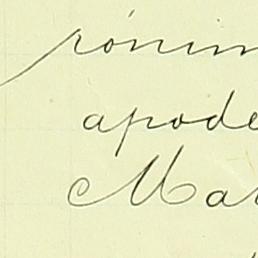 rónim
apode
Ma